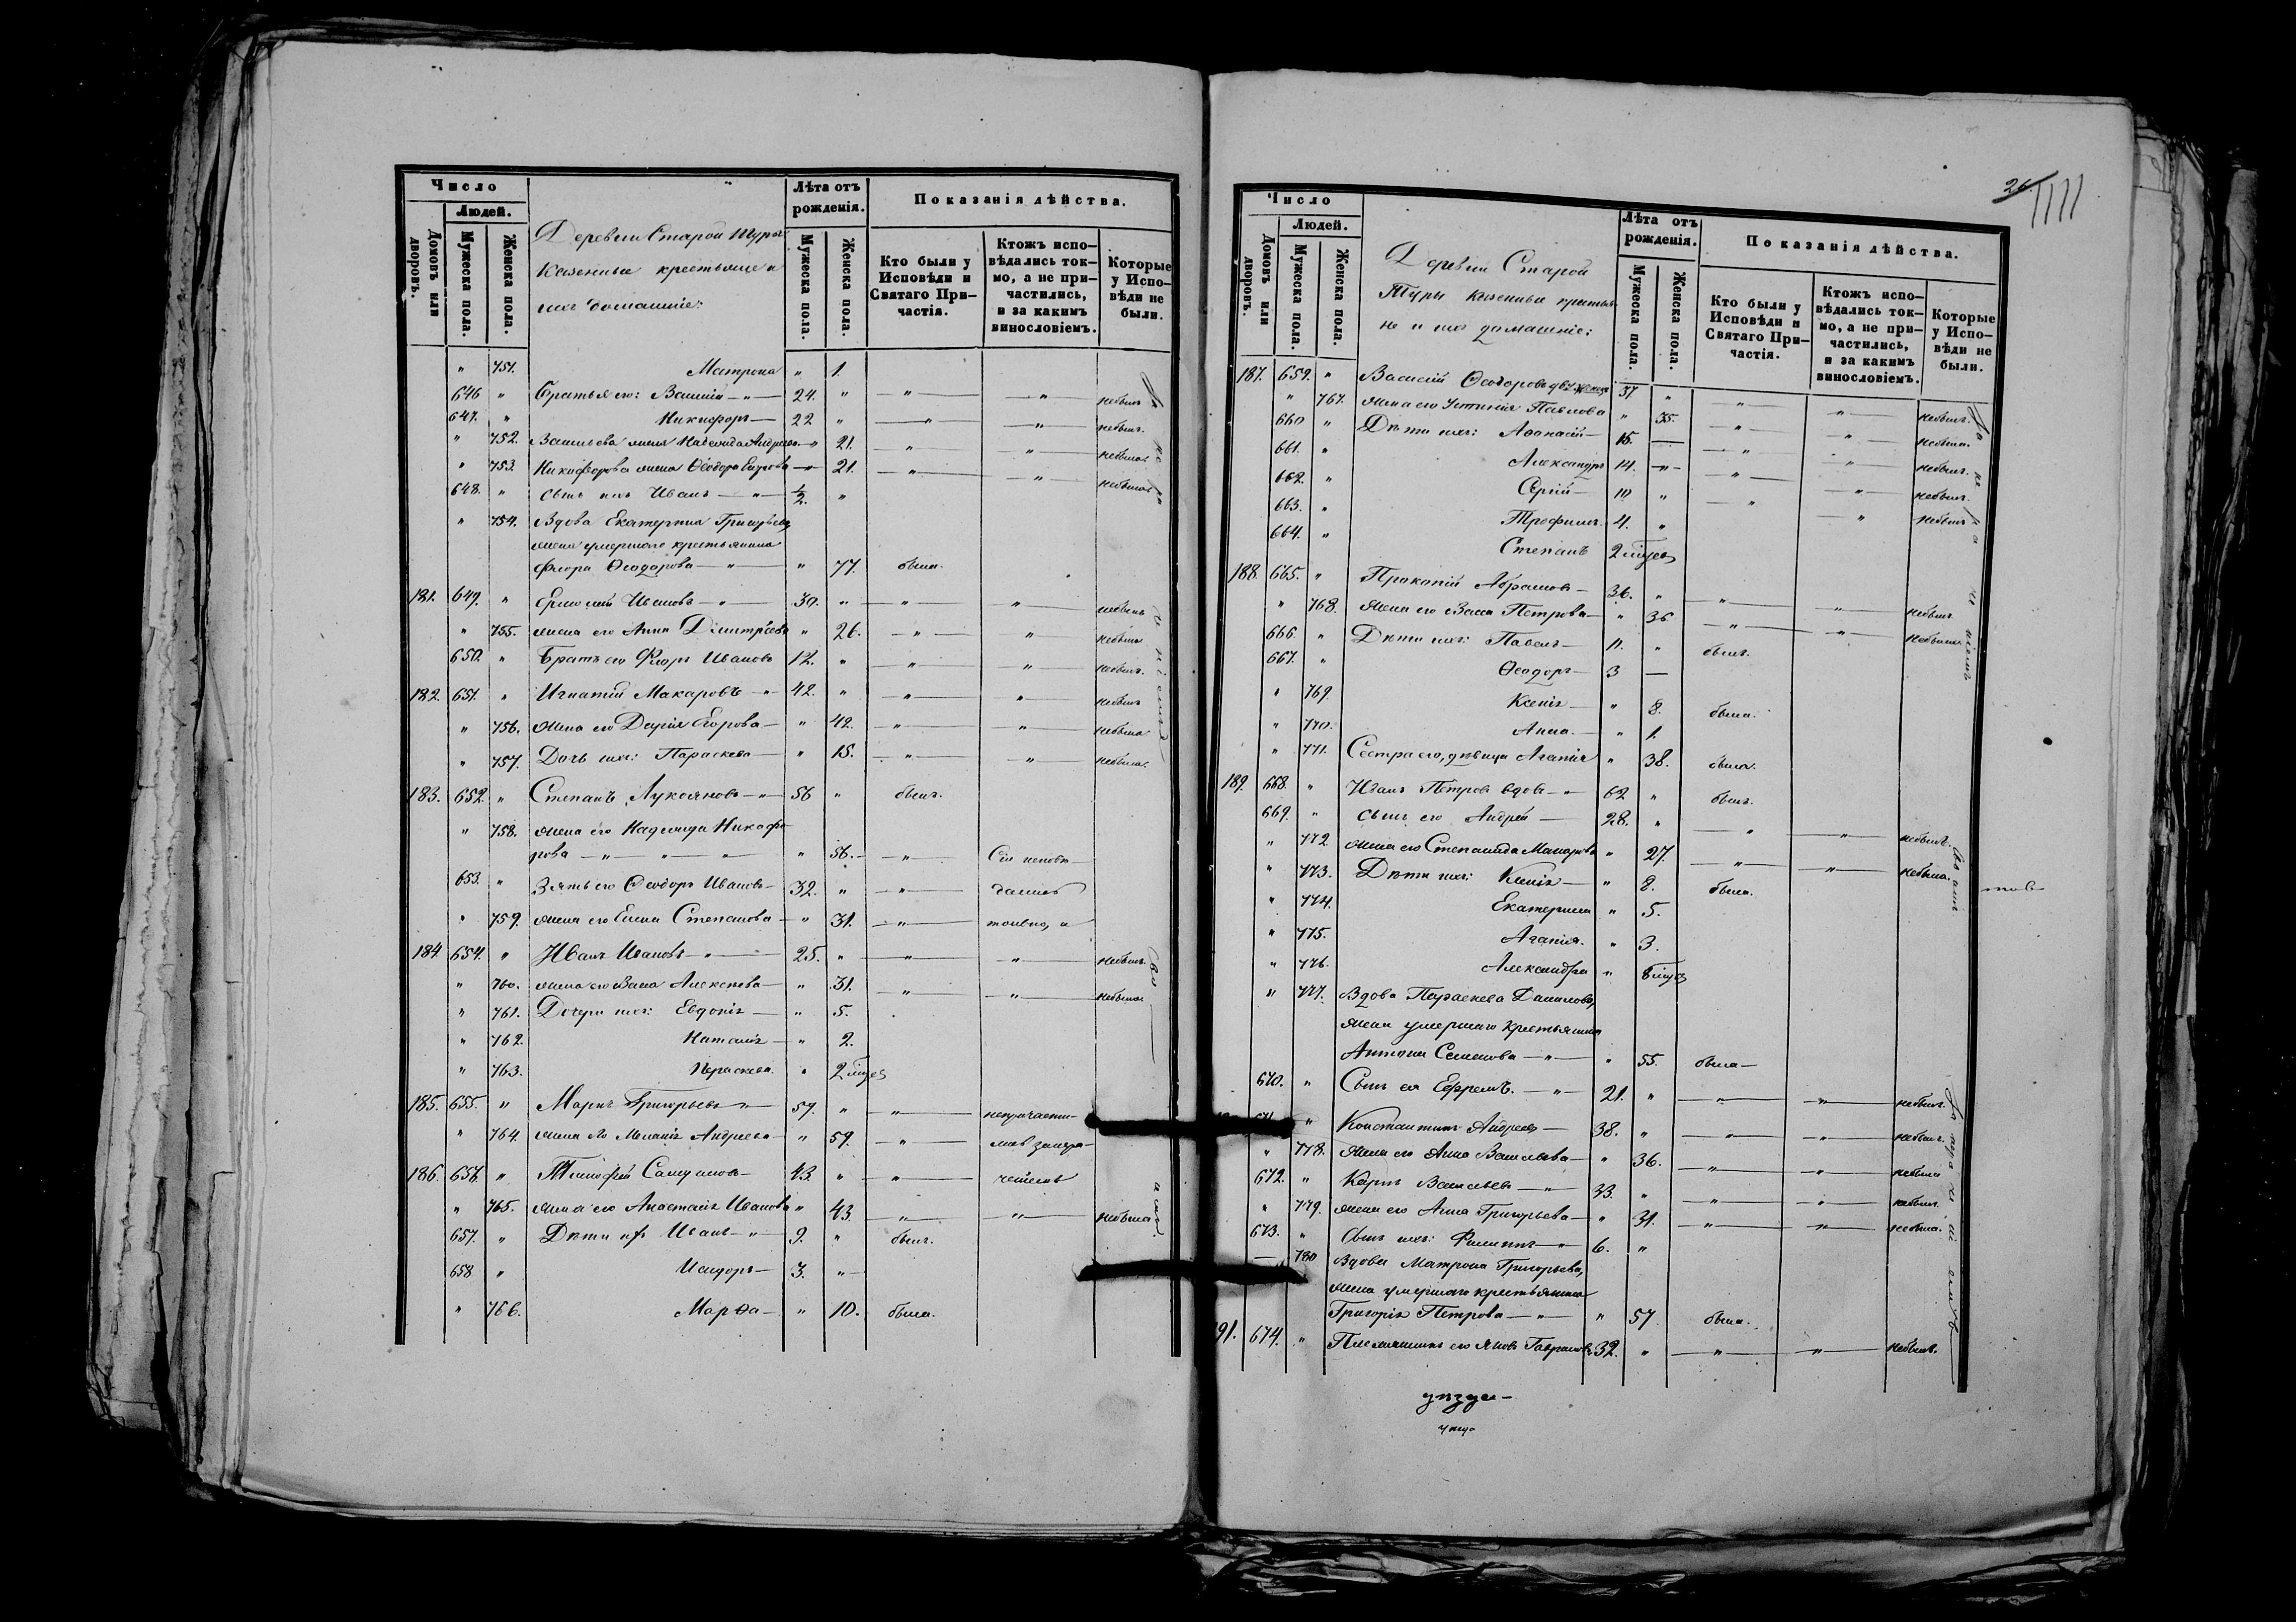 Число
Людей.
Домовъ или дворовъ.
Мужеска пола.
Женска пола.
Деревни Старой Туры
казенные крестьяне и
ихъ домашніе:
Лѣта отъ рожденія.
Мужеска пола.
Женска пола.
Показанія дѣйства.
Кто были у Исповѣди и Святаго Причастія.
Ктожъ исповѣдались токмо, а не причастились, и за какимъ винословіемъ.
Которые у Исповѣди не были.
" 751. Матрона " 1.
646 " Братья его: Василій 24. " " " небылъ
647. " Никифоръ 22 " " " небылъ.
" 752. Васильева жена Надежда Андреева " 21. " " небыла
" 753. Никифорова жена Ѳеодора " 21. " " небыла
648. " сынъ ихъ Иванъ " ½. "
" 754. Вдова Екатерина Григорьева,
жена умершаго крестьянина
Флора Ѳеодорова " " 77. была.
181. 649. " Ермолай Ивановъ " 30. " " " небылъ
" 755. жена его Анна Димитріева " 26. " " небыла
650. " Братъ его Флоръ Ивановъ 12. " " " небылъ.
182. 651. " Игнатій Макаровъ " 42. " " " небылъ
" 756. жена его Дарія Егорова " 42. " " небыла
" 757. Дочь ихъ: Параскева " 15. " " небыла.
183. 652. " Степанъ Лукояновъ " 56 " былъ.
" 758. жена его Надежда Никифо-
рова " " " " 56. " Сіи исповѣ-
653. " Зять его Ѳеодоръ Ивановъ 32. " " дались
" 759. жена его Елена Степанова " 31. " токмо, а
184 654. " Иванъ Ивановъ " 25. " " " небылъ.
" 760. жена его Васса Алексѣева " 31. " " небыла.
" 761. Дочери ихъ: Евдокія " 5.
" 762. Наталія " 2.
" 763. Параскева. " 2 мѣсяц
185. 655. " Маркъ Григорьевъ " 59. " " непричасти-
" 764. жена его Меланія Андреева " 59. " лись за
186. 656. " Тимофей " 43. " "
" 765. жена его Анастасія Иванова " 43. " " небыла
657. " Дѣти их Иванъ " 9. " былъ.
658 " Исидоръ 3. "
" 766. Марѳа " 10. была.
26
Число
Людей.
Домовъ или дворовъ.
Мужеска пола.
Женска пола.
Деревни Старой
Туры казенные крестья-
не и ихъ домашніе:
Лѣта отъ рожденія.
Мужеска пола.
Женска пола.
Показанія дѣйства.
Кто были у Исповѣди и Святаго Причастія.
Ктожъ исповѣдались токмо, а не причастились, и за какимъ винословіемъ.
Которые у Исповѣди не были.
187. 659. " Василій Ѳеодоровъ 37 " " " небылъ.
" 767. жена его Устинія Павлова " 35. " " небыла.
660 " Дѣти ихъ: Аѳанасій 15. " " небылъ.
661. " Александръ 14. " " " небылъ.
662. " Сергій 10 " " " небылъ
663. " Трофимъ. 4. "
664. " Степанъ 2 мѣсяц
188. 665. " Прокопій Абрамовъ 36. " " " небылъ
" 768. жена его Васса Петрова " 36 " " небыла
666. " Дѣти ихъ: Павелъ 11. " былъ.
667. " Ѳеодоръ 3
" 769. Ксенія " 8. была.
" 770. Анна. " 1.
" 771. Сестра его, дѣвица Агапія " 38. была.
189. 668. " Иванъ Петровъ вдовъ " 62 " былъ.
669. " сынъ его Андрей 28. " " " небылъ.
" 772 жена его Степанида Макарова " 27. " " небыла.
" 773. Дѣти ихъ: Ксенія " 8. была.
" 774. Екатерина " 5.
" 775. Агапія. " 3.
" 776. Александра "
" 777. Вдова Параскева Данилова,
жена умершаго крестьянина
Антона Семенова " " 55. была
670. " Сынъ ея Ефремъ. " 21. " " " небылъ.
" Константинъ Андреевъ 38. " " " небылъ.
" 778. жена его Анна Васильева " 36. " " небыла
672. " Карпъ Васильевъ " 33. " " " небылъ.
" 779. жена его Анна Григорьева " 31. " " небыла.
673. " Сынъ ихъ: Филиппъ " 6. "
780 Вдова Матрона Григорьева,
жена умершаго крестьянина
Григорія Петрова " " 57. была.
91. 674. " Племянникъ его Яковъ 32. " " " небылъ.